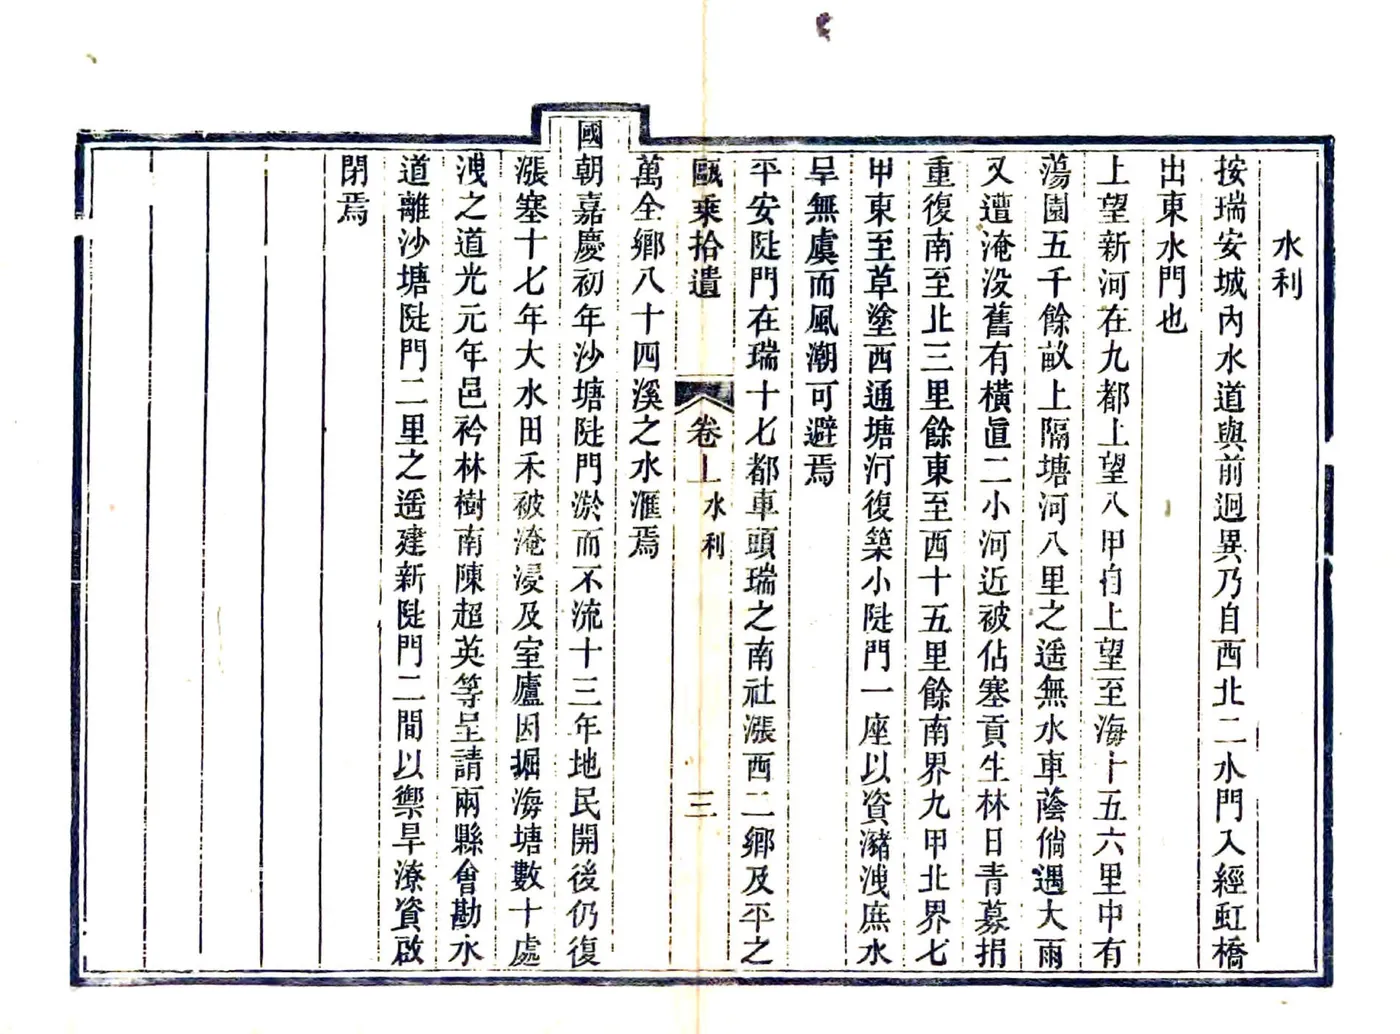 水利
按瑞安城內水道與前迥異乃自西北二水門入經虹橋
出東水門也
上望新河在九都上望八甲自上望至海十五六里中有
蕩園五千餘畝上隔塘河八里之遥無水車蔭倘遇大雨
又遭淹没舊有橫直二小河近被佔塞貢生林日青募捐
重復南至北三里餘東至西十五里餘南界九甲北界七
甲東至草塗西通塘河復築小陡門一座以資瀦洩庶水
旱無虞而風潮可避焉
平安陡門在瑞十七都車頭瑞之南社漲西二鄉及平之
甌乘拾遺
卷上
水利
三
萬全鄉八十四溪之水滙焉
國朝嘉慶初年沙塘陡門淤而不流十三年地民開後仍復
漲塞十七年大水田禾被淹浸及室廬因掘海塘數十處
洩之道光元年邑衿林樹南陳超英等呈請兩縣會勘水
道離沙塘陡門二里之遥建新陡門二間以禦旱潦資啟
閉焉